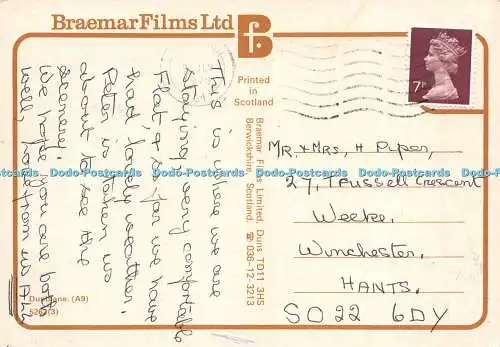 Braemar Films Ltd
Bf.
Printed in
Scotland
7P
This is where we are
staying, very comfortable
flat, & so far we have
had lovely weather.
Peter is taken us
about to see the
scenery.
We hope you are both
well, love from us all
Braemar Films Limited, Duns TD11 3HS
Berwickshire, Scotland. ☎ 036-12-3213
MR. & MRS, H Piper,
27, TRUSSELL Crescent
Weeke.
Winchester,
HANTS,
SO22 6DY
Dunblane. (A9)
Dodo-Postcards Dodo-Postcards Dodo-Postcards Dodo-Postcards Dodo-Postcards